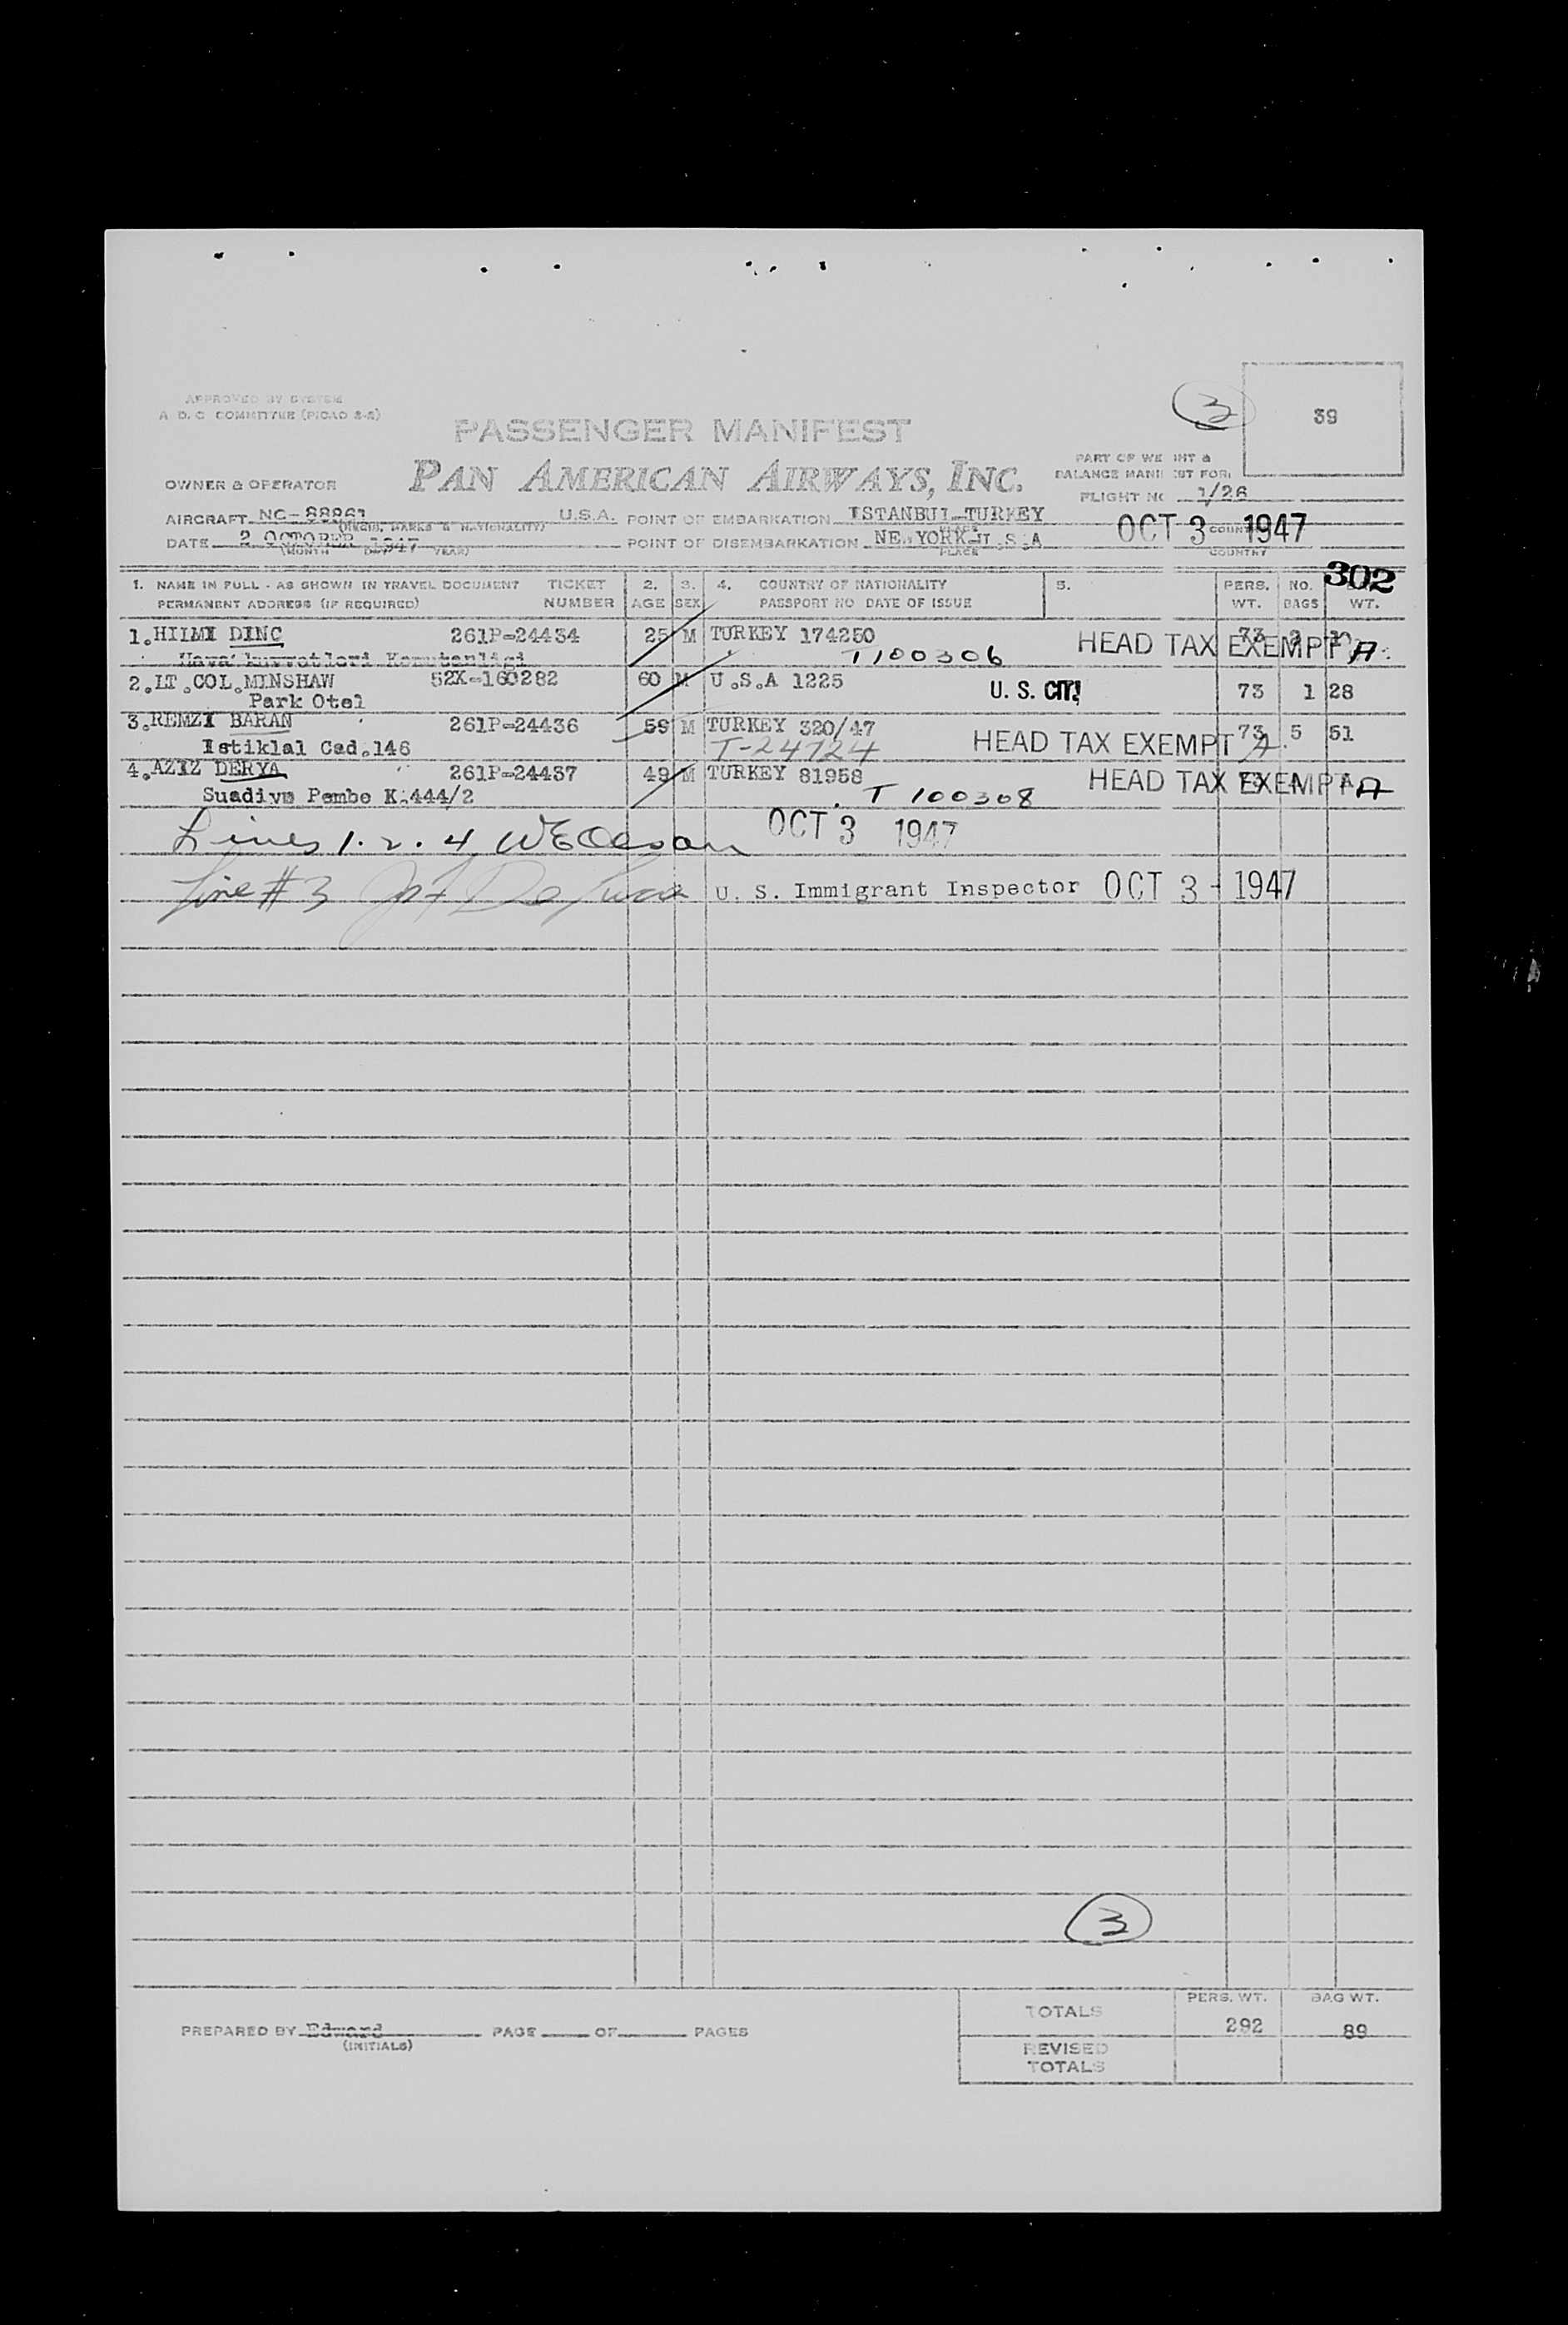 APPROVED BY SYSTEM
A. D. C. COMMITTEE (PICAO 2-2)
3
39
PASSENGER MANIFEST
PAN AMERICAN AIRWAYS, INC.
PART OF WE IHT &
BALANCE MANI ST FOR
OWNER & OPERATOR
FLIGHT NO 1/26
AIRCRAFT NC-88861 U.S.A. POINT OF EMBARKATION ISTANBUL-TURKEY
OCT 3 1947
DATE 2 OCTOBER 1947 POINT OF DISEMBARKATION NEW YORK-U.S.A
(MONTH DAY YEAR) PLACE COUNTRY
302
1. NAME IN FULL - AS SHOWN IN TRAVEL DOCUMENT TICKET 2. 3. 4. COUNTRY OF NATIONALITY 5. PERS. NO.
PERMANENT ADDRESS (IF REQUIRED) NUMBER AGE SEX PASSPORT NO DATE OF ISSUE WT. BAGS WT.
1.HILMI DINC 261P-24434 25 M TURKEY 174250 HEAD TAX EXEMPT A 73
Hava kuvvetleri Komutanligi T100306
2.LT.COL.MINSHAW 52X-160282 60 M U.S.A 1225 U. S. CIT. 73 1 28
Park Otel
3.REMZI BARAN 261P-24436 59 M TURKEY 320/47 HEAD TAX EXEMPT A. 73 5 51
Istiklal Cad.146 T-24724
4.AZIZ DERYA 261P-24437 49 M TURKEY 81958 HEAD TAX EXEMPT A 73
Suadiye Pembe K.444/2 T 100308
Lines 1. 2. 4 OCT 3 1947
Line #3 U. S. Immigrant Inspector OCT 3 - 1947
3
TOTALS PERS. WT. BAG WT.
292 89
PREPARED BY Edward PAGE OF PAGES
(INITIALS)
REVISED
TOTALS